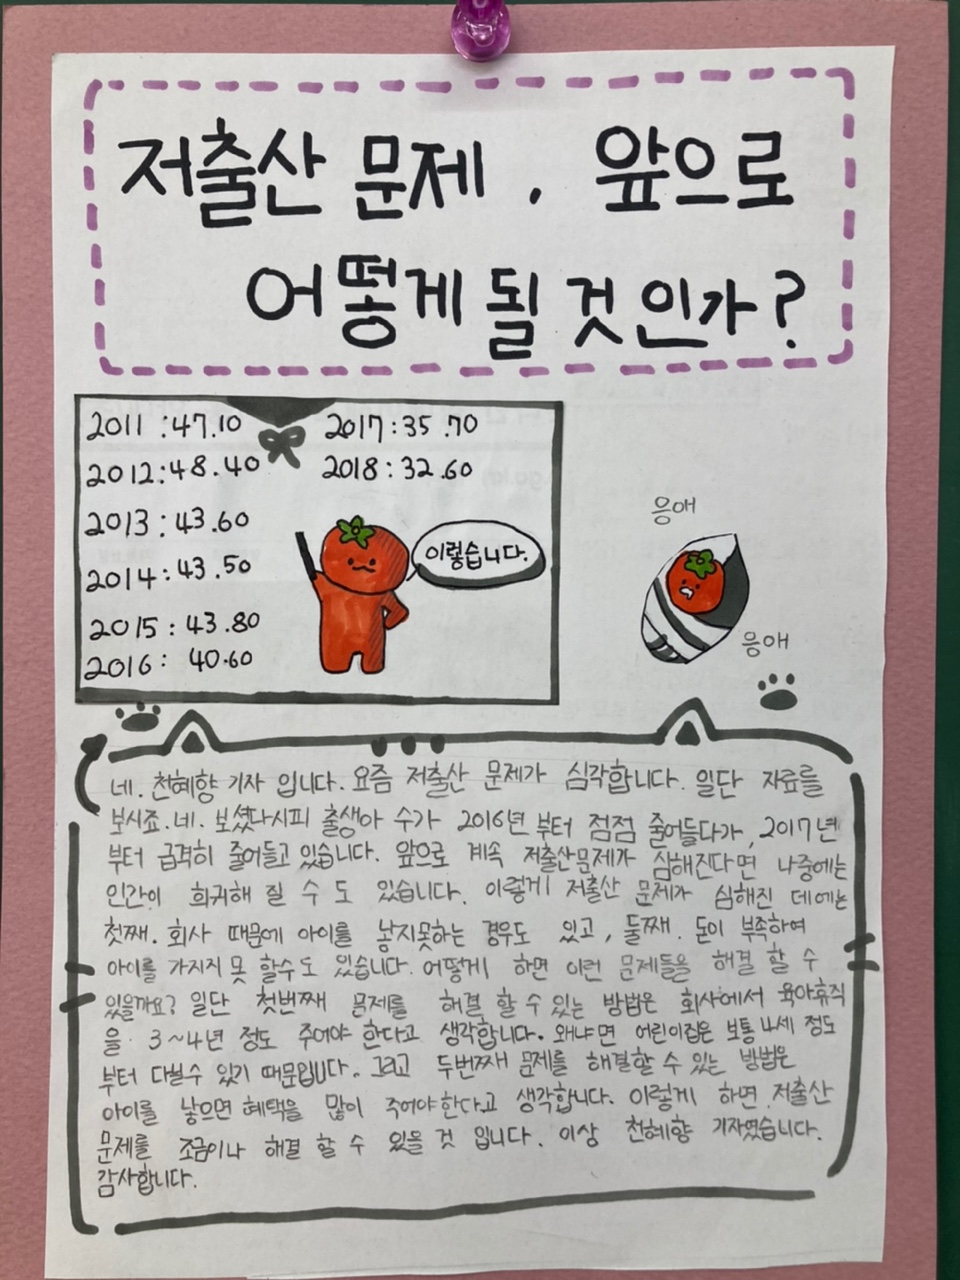 저출산 문제, 앞으로
어떻게 될 것인가?
2011 : 47.10
2012 : 48.40
2013 : 43.60
2014 : 43.50
2015 : 43.80
2016 : 40.60
2017 : 35.70
2018 : 32.60
이렇습니다.
응애
응애
네. 천혜향 기자 입니다. 요즘 저출산 문제가 심각합니다. 일단 자료를
보시죠. 네. 보셨다시피 출생아 수가 2016년 부터 점점 줄어들다가, 2017년
부터 급격히 줄어들고 있습니다. 앞으로 계속 저출산문제가 심해진다면 나중에는
인간이 희귀해 질 수 도 있습니다. 이렇게 저출산 문제가 심해진 데에는
첫째. 회사 때문에 아이를 낳지못하는 경우도 있고, 둘째. 돈이 부족하여
아이를 가지지 못 할수 도 있습니다. 어떻게 하면 이런 문제들을 해결 할 수
있을까요? 일단 첫번째 문제를 해결 할 수 있는 방법은 회사에서 육아휴직
을 3~4년 정도 주어야 한다고 생각합니다. 왜냐면 어린이집은 보통 4세 정도
부터 다닐수 있기 때문입니다. 그리고 두번째 문제를 해결할 수 있는 방법은
아이를 낳으면 혜택을 많이 주어야한다고 생각합니다. 이렇게 하면 저출산
문제를 조금이나 해결 할 수 있을 것 입니다. 이상 천혜향 기자였습니다.
감사합니다.